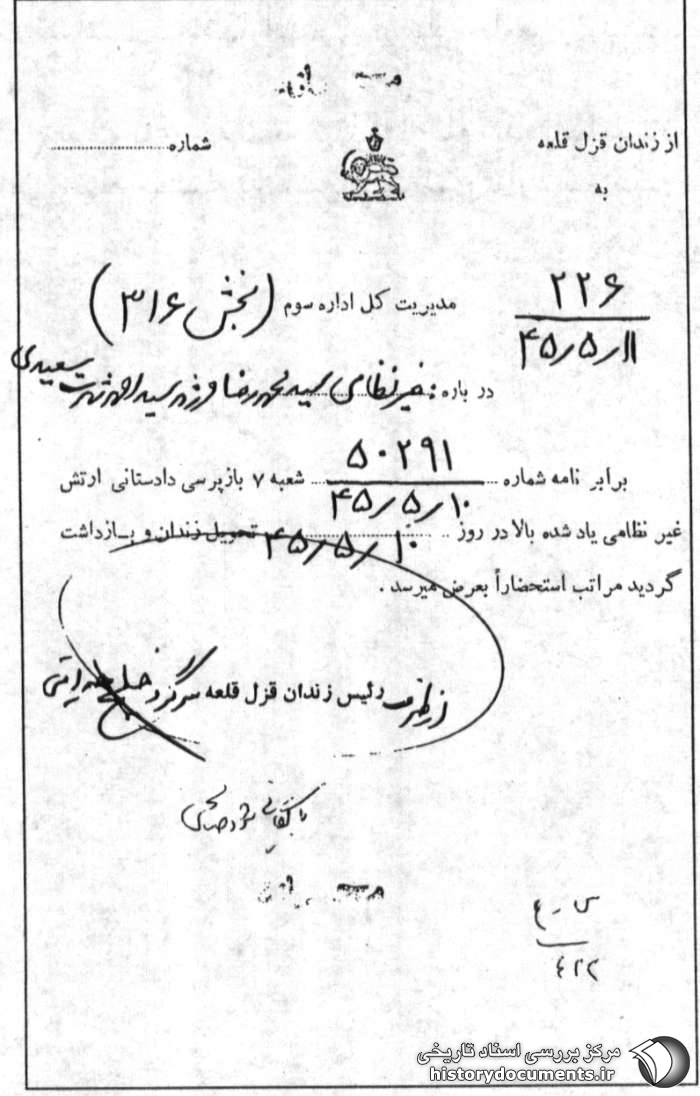 از زندان قزل قلعه
شماره
به
۲۲۶
۴۵/۵/۱۱
مدیریت کل اداره سوم (بخش ۳۱۶)
در باره: غیر نظامی سید محمد رضا فرزند سید احمد شهرت سعیدی
برابر نامه شماره ۵۰۲۹۱ شعبه ۷ بازپرسی دادستانی ارتش
۴۵/۵/۱۰
غیر نظامی یاد شده بالا در روز ۴۵/۵/۱۰ تحویل زندان و بازداشت
گردید مراتب استحضاراً بعرض میرسد .
از طرف رئیس زندان قزل قلعه سرگرد
بایگانی شود
۴۲۲
مرکز بررسی اسناد تاریخی
historydocuments.ir